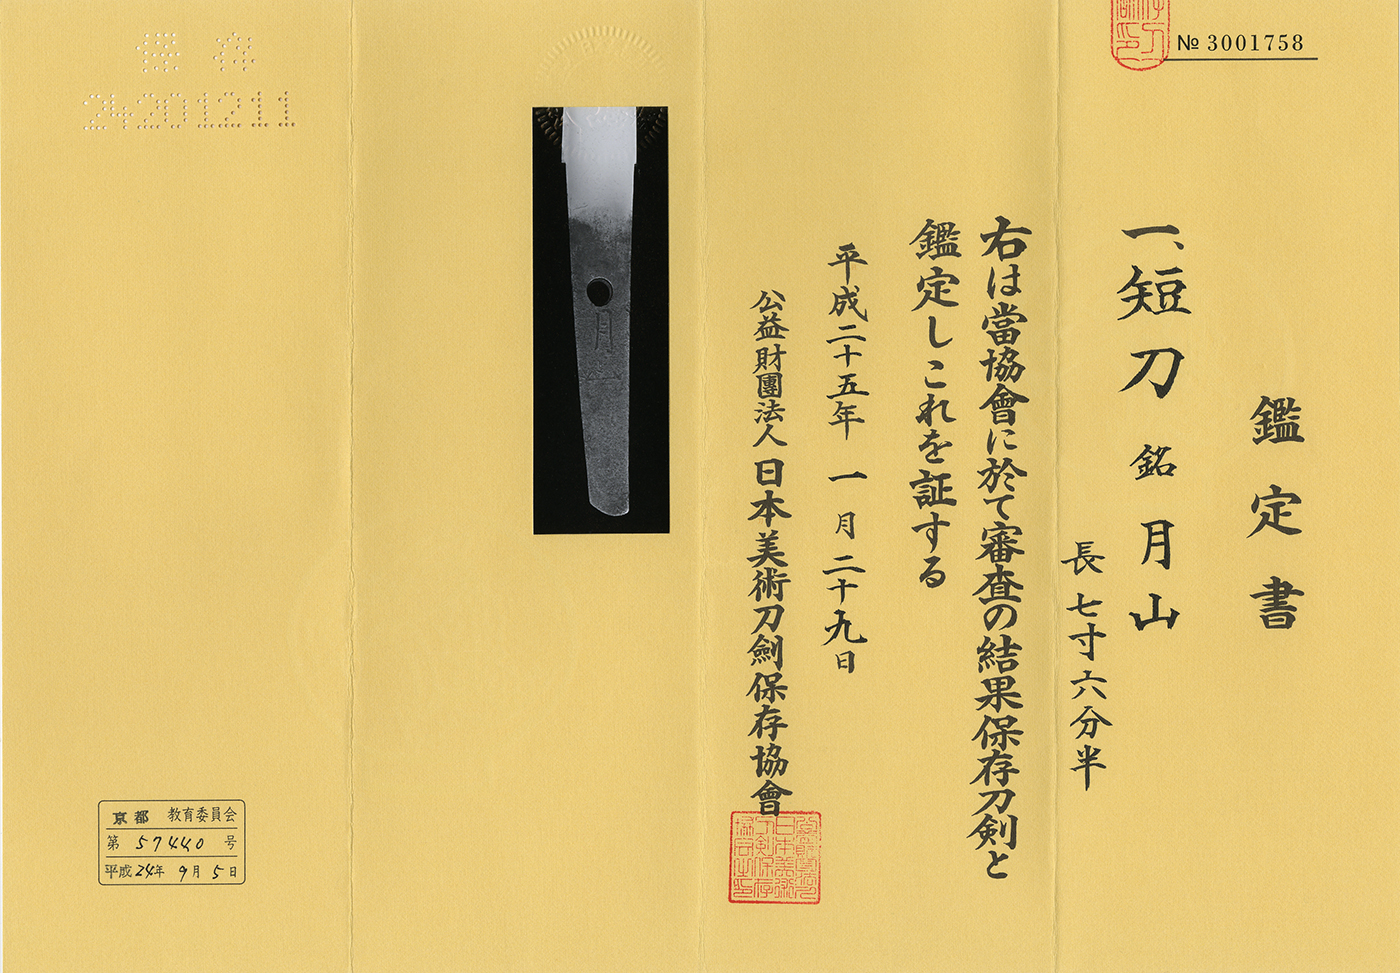 № 3001758
鑑定書
一、短刀 銘 月山
長七寸六分半
右は當協會に於て審査の結果保存刀剣と
鑑定しこれを証する
平成二十五年一月二十九日
公益財團法人 日本美術刀劍保存協會
月
保存
24201211
京都 教育委員会
第 57440 号
平成 24年 9月 5日